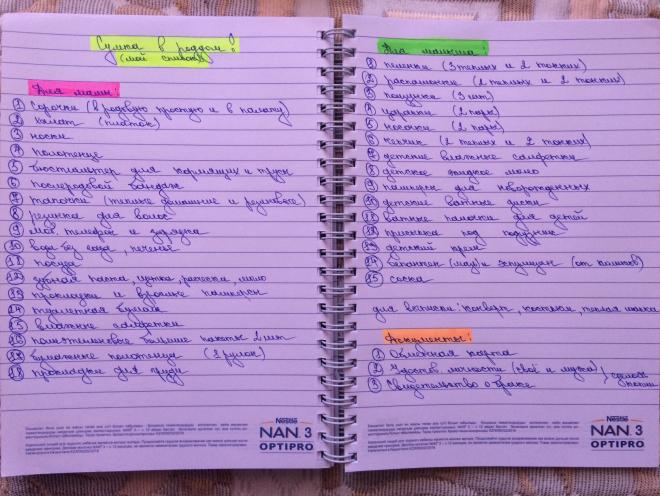 Сумка в роддом!
(мой список)
Для мамы:
1 Сорочки (в родовую простую и в палату)
2 Халат (платок)
3 носки
4 Полотенце
5 бюстгальтер для кормящих и трусы
6 послеродовой бандаж
7 тапочки (теплые домашние и резиновые)
8 резинка для волос
9 моб. телефон и зарядка
10 вода без газа, печенье
11 посуда
12 зубная паста, щетка, расческа, мыло
13 прокладки и взрослые памперсы
14 туалетная бумага
15 влажные салфетки
16 полиэтиленовые большие пакеты 2 шт
17 бумажные полотенца (2 рулон)
18 прокладки для груди
Nestle
NAN 3
OPTIPRO
Для малыша:
1 пеленки (3 теплых и 2 тонких)
2 распашонки (2 теплых и 2 тонких)
3 ползунки (3 шт)
4 царапки (2 пары)
5 носочки (2 пары)
6 чепчик (2 теплых и 2 тонких)
7 детские влажные салфетки
8 детское жидкое мыло
9 памперсы для новорожденных
10 детские ватные диски
11 ватные палочки для детей
12 присыпка под подгузник
13 детский крем
14 бепантен (мазь) и эспумизан (от коликов)
15 соска
для выписки: конверт, костюм, теплая шапка
Документы:
1 Обменная карта
2 Удостов. личности (своё и мужа)
3 Свидетельство о браке
копии
Nestle
NAN 3
OPTIPRO